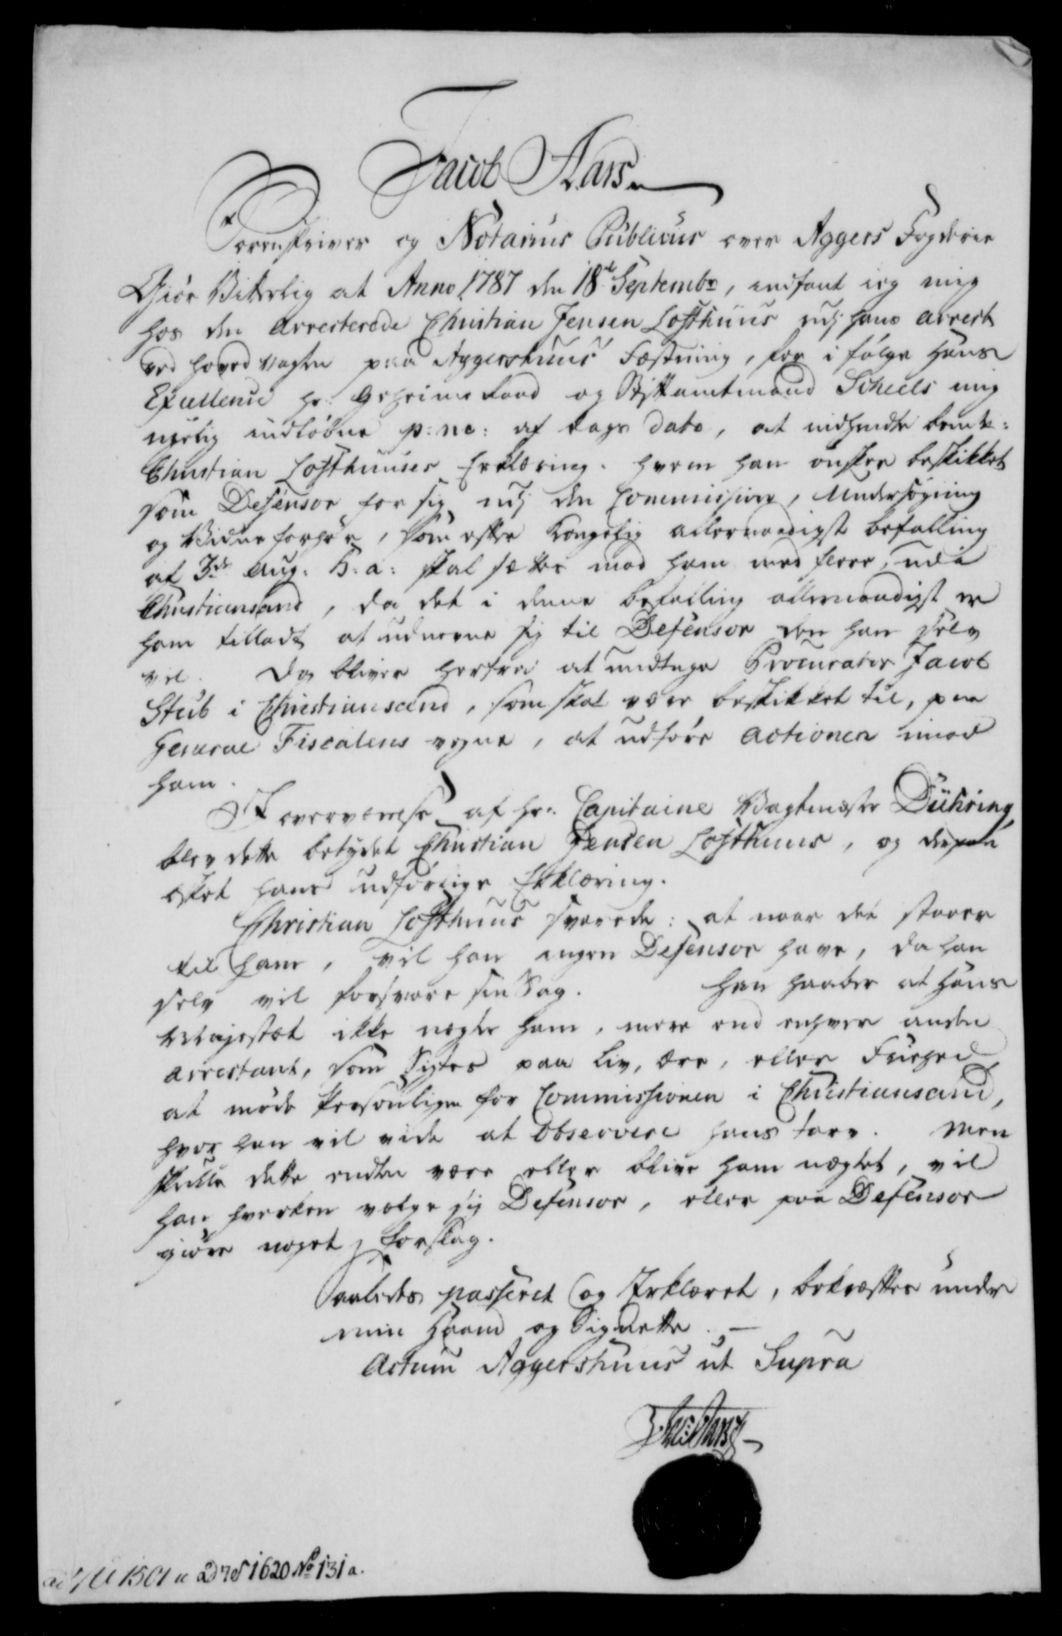 Jacob Aars
Sorenskriver og Notarius Publicus over Aggers Fogderie
Giör Vitterlig at Anno 1787 den 18de Septembr, indfant ieg mig
hos den arresterede Christian Jensen Lofthuus udj hans arrest
ved hoved vagten paa Aggershuus Fæstning, for i følge Hans
Excellence hr: Geheime Raad og Stiftamtmand Scheels mig
nylig indløbne p: m: af Dags dato, at indhendte bemte:
Christian Lofthuuses Erklæring. hvem han ønsker beskikket
som Defensor for sig udj den Commissions, Undersøgning
og Vidne forhør, som efter Kongelig allernaadigst befalling
af 3de Aug: h: a: skal sættes mod ham med flere, udi
Christiansand, da det i denne befalling allernaadigst er
ham tilladt at udnevne sig til Defensor den han selv
vil. Dog bliver herfra at undtage Procurator Jacob
Stub i Christiansand, som skal være beskikket til, paa
General Fiscalens vegne, at udføre actionen imod
ham.
I overværelse af hr: Capitaine Vagtmester Dühring
blev dette betydet Christian Jensen Lofthuus, og derpaa
æsket hans udførlige Erklæring.
Christian Lofthuus svarede: at naar det staaer
til ham, vil han ingen Defensor have, da han
selv vil forsvare sin Sag. Han haaber at Hans
Majestæt ikke negter ham, mere end enhver anden
arrestant, som Sigtes paa Liv, ære, eller Friehed
at møde Personligen for Commissionen i Christiansand,
hvor han vil vide at observere hans tarv. Men
skulle dette enten være eller blive ham nægtet, vil
han hverken vælge sig Defensor, eller paa Defensor
giøre noget Forslag.
Saaledes passeret og Erklæret, bekræfter under
min Haand og Signette. —
Actum Aggershuus ut Supra
J: Aars
1620 No 131 a.